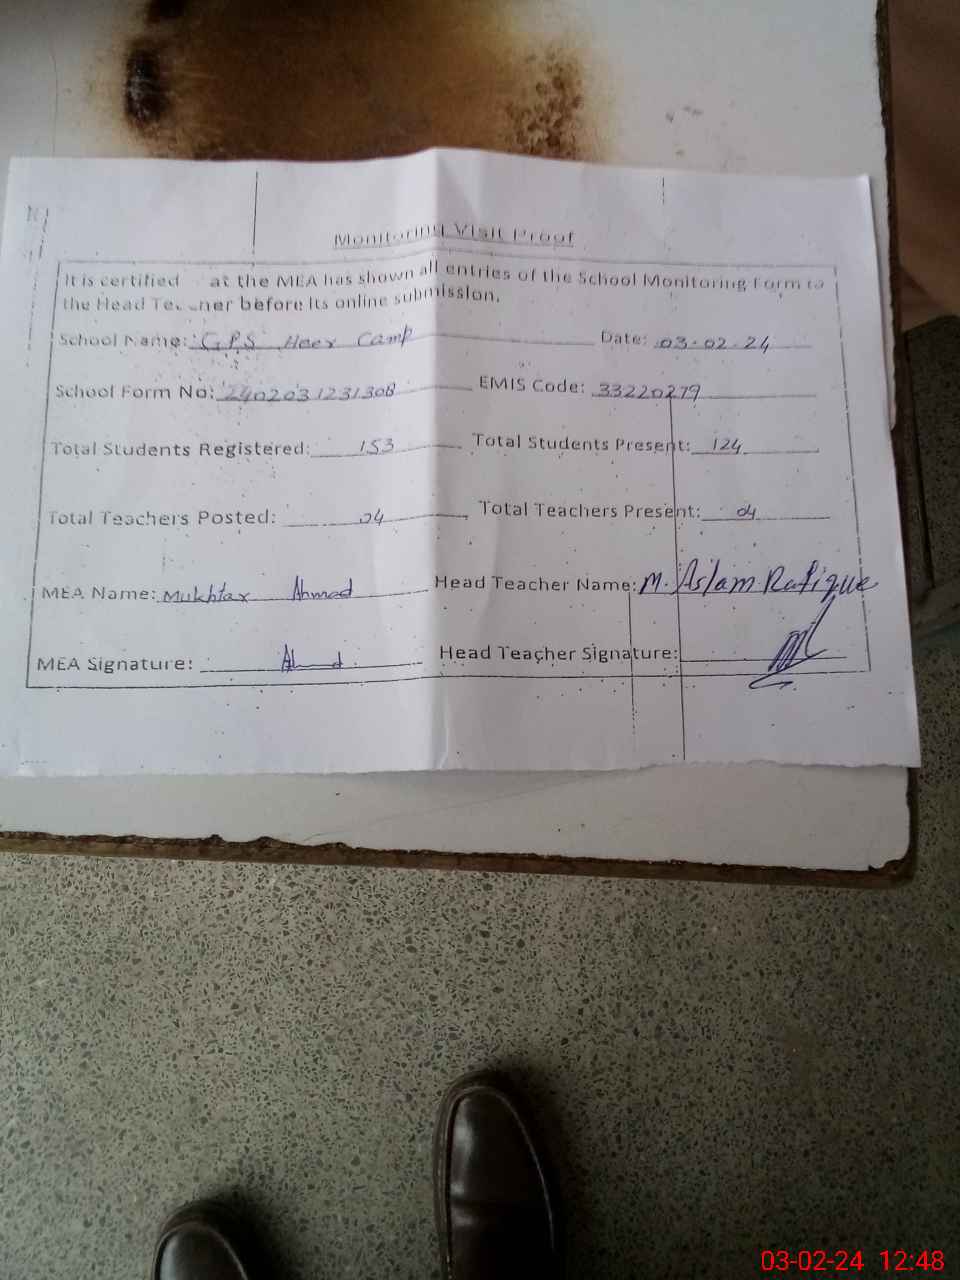 Monitoring Visit Proof
It is certified at the MEA has shown all entries of the School Monitoring Form to
the Head Teacher before its online submission.
School Name: GPS Heer Camp Date: 03-02-24
School Form No: 2402031231308 EMIS Code: 33220279
Total Students Registered: 153 Total Students Present: 124
Total Teachers Posted: 04 Total Teachers Present: 04
MEA Name: Mukhtar Ahmad Head Teacher Name: M. Aslam Rafique
MEA Signature: Ahmad Head Teacher Signature:
03-02-24 12:48